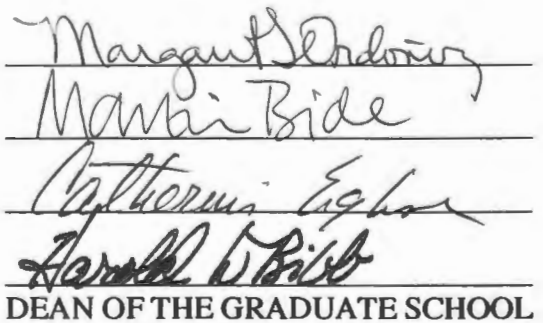 Margaret Ordoñez
Martin Bide
Catherine
Harold D Bibb
DEAN OF THE GRADUATE SCHOOL